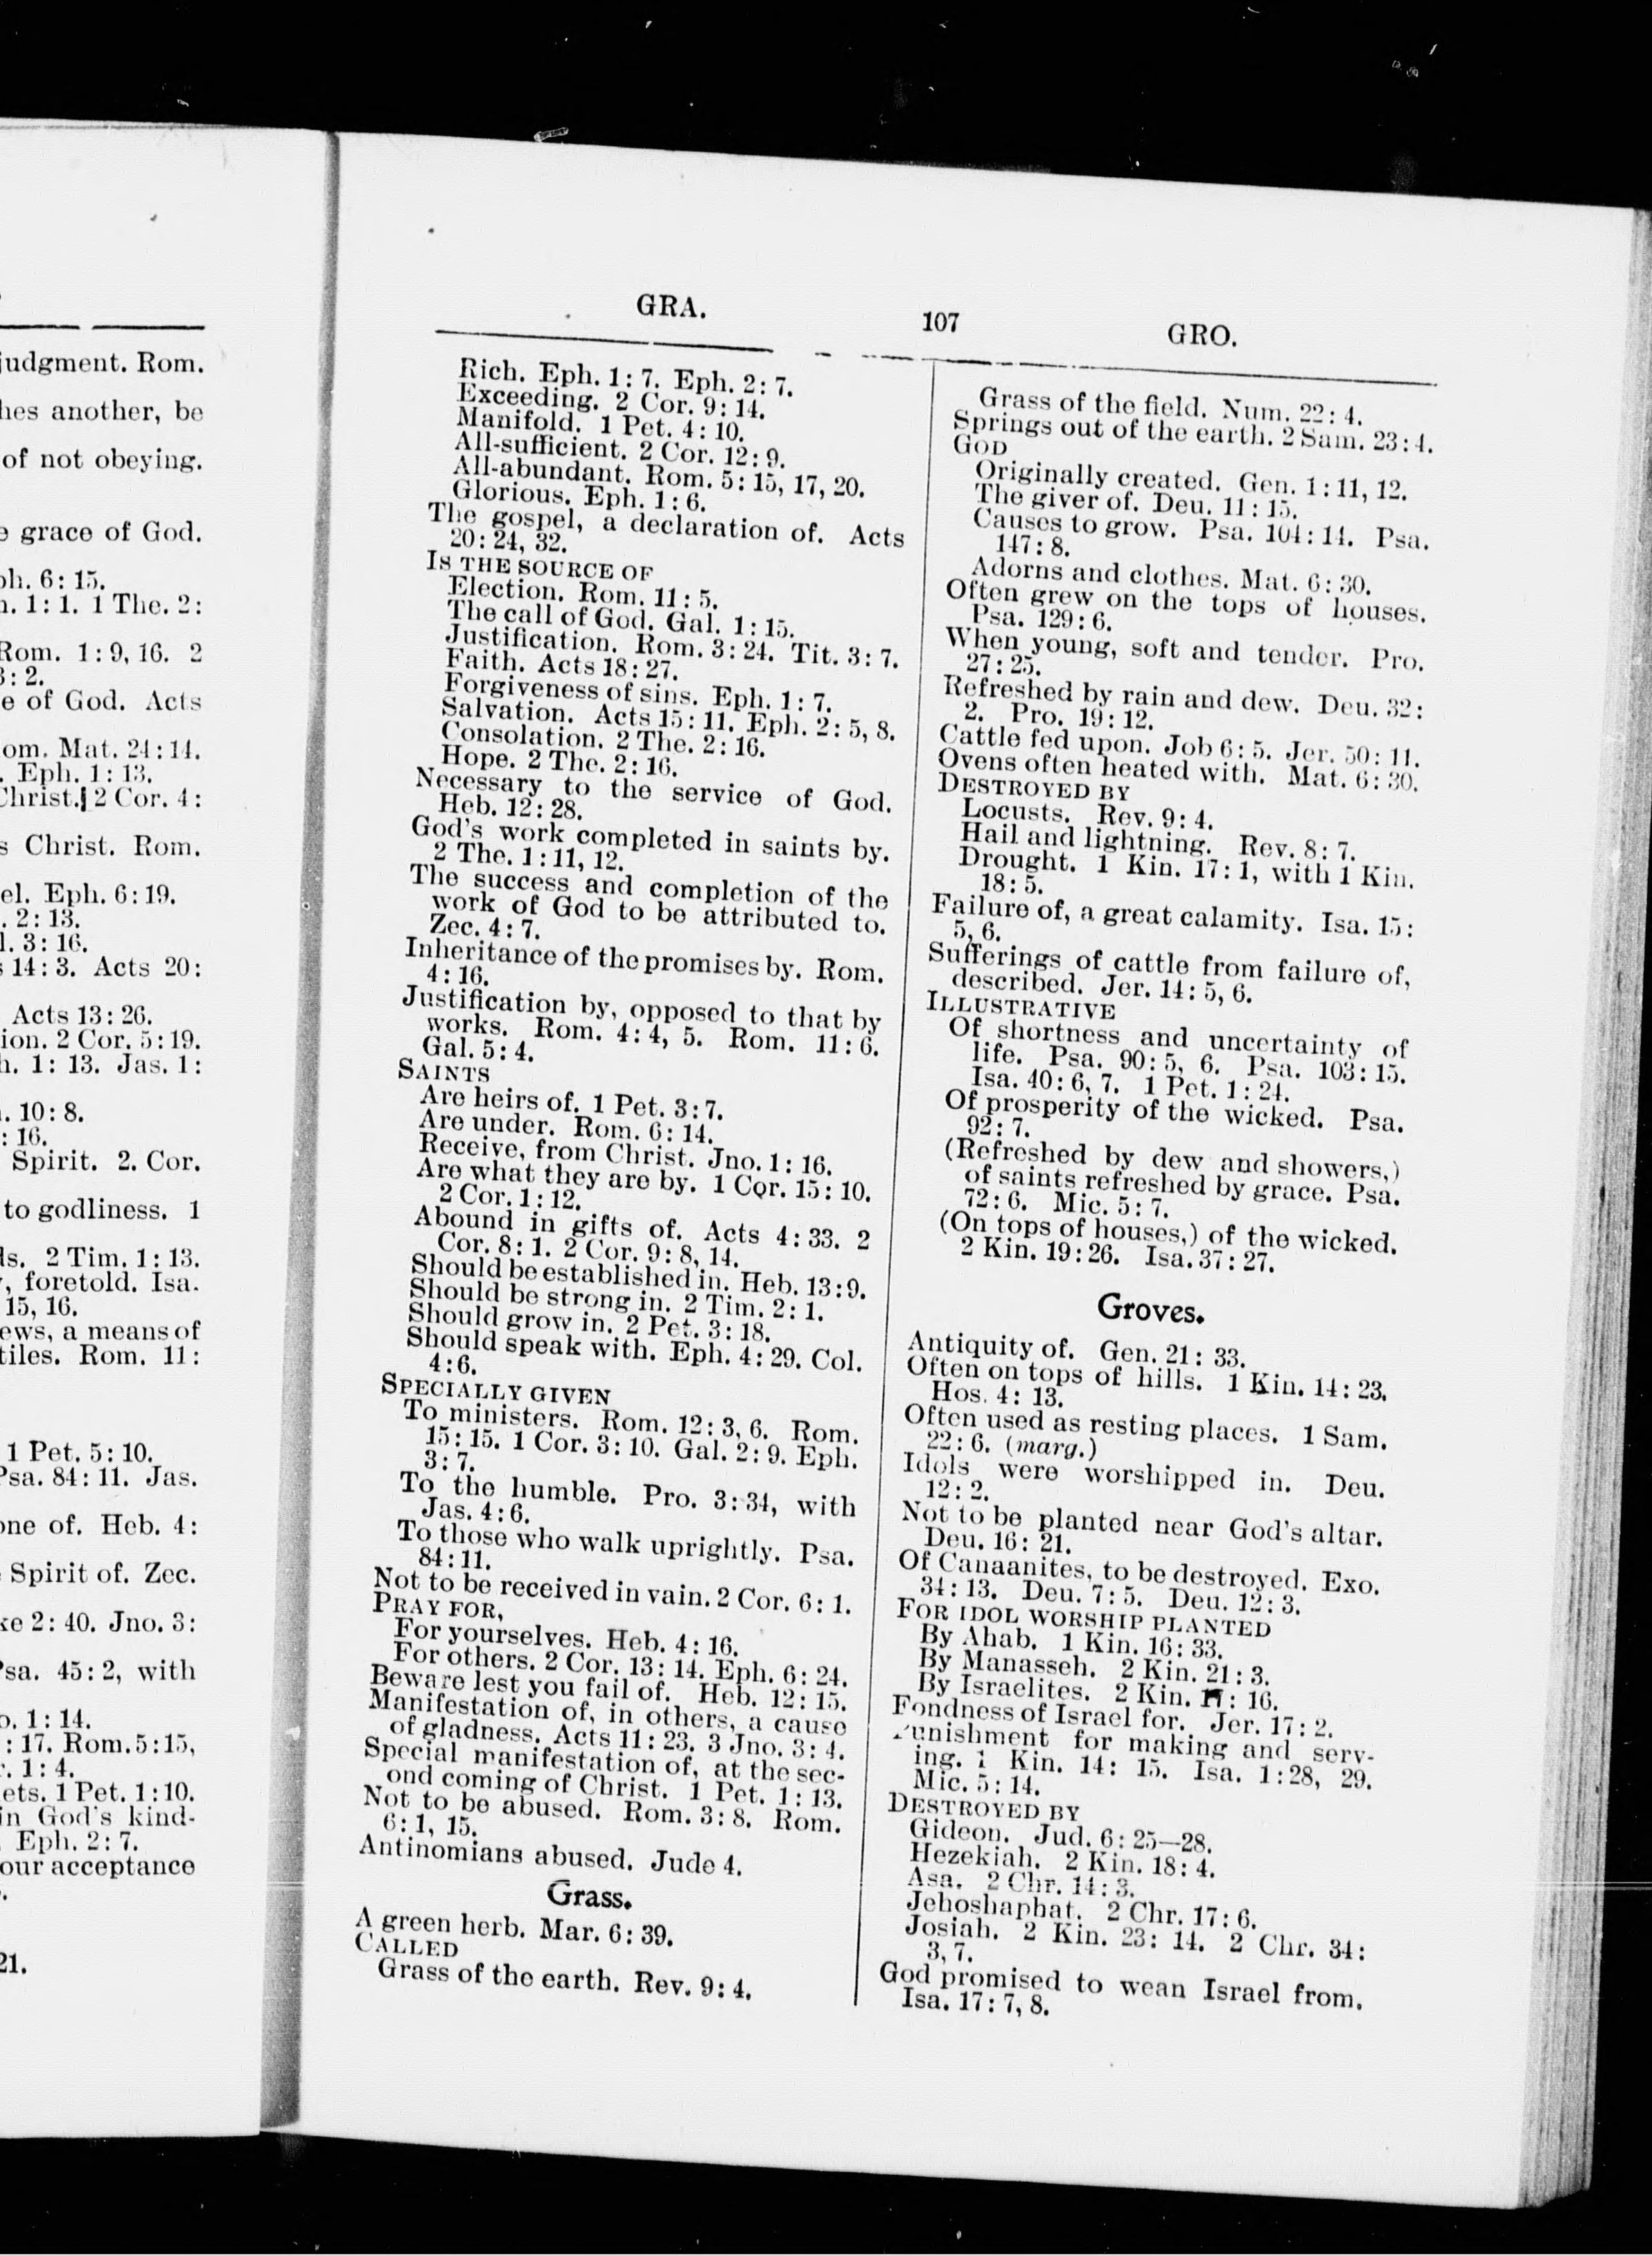 judgment. Rom.
hes another, be
of not obeying.
grace of God.
ph. 6: 15.
1: 1. 1 The. 2:
Rom. 1: 9, 16. 2
3: 2.
e of God. Acts
om. Mat. 24: 14.
. Eph. 1: 13.
Christ. 2 Cor. 4:
s Christ. Rom.
el. Eph. 6: 19.
. 2: 13.
l. 3: 16.
s 14: 3. Acts 20:
Acts 13: 26.
ion. 2 Cor. 5: 19.
h. 1: 13. Jas. 1:
. 10: 8.
: 16.
Spirit. 2. Cor.
to godliness. 1
ls. 2 Tim. 1: 13.
, foretold. Isa.
15, 16.
ews, a means of
tiles. Rom. 11:
1 Pet. 5: 10.
Psa. 84: 11. Jas.
one of. Heb. 4:
Spirit of. Zec.
ke 2: 40. Jno. 3:
Psa. 45: 2, with
o. 1: 14.
: 17. Rom. 5: 15,
r. 1: 4.
ets. 1 Pet. 1: 10.
in God's kind-
Eph. 2: 7.
our acceptance
21.
GRA.
107
GRO.
Rich. Eph. 1: 7. Eph. 2: 7.
Exceeding. 2 Cor. 9: 14.
Manifold. 1 Pet. 4: 10.
All-sufficient. 2 Cor. 12: 9.
All-abundant. Rom. 5: 15, 17, 20.
Glorious. Eph. 1: 6.
The gospel, a declaration of. Acts
20: 24, 32.
IS THE SOURCE OF
Election. Rom. 11: 5.
The call of God. Gal. 1: 15.
Justification. Rom. 3: 24. Tit. 3: 7.
Faith. Acts 18: 27.
Forgiveness of sins. Eph. 1: 7.
Salvation. Acts 15: 11. Eph. 2: 5, 8.
Consolation. 2 The. 2: 16.
Hope. 2 The. 2: 16.
Necessary to the service of God.
Heb. 12: 28.
God's work completed in saints by.
2 The. 1: 11, 12.
The success and completion of the
work of God to be attributed to.
Zec. 4: 7.
Inheritance of the promises by. Rom.
4: 16.
Justification by, opposed to that by
works. Rom. 4: 4, 5. Rom. 11: 6.
Gal. 5: 4.
SAINTS
Are heirs of. 1 Pet. 3: 7.
Are under. Rom. 6: 14.
Receive, from Christ. Jno. 1: 16.
Are what they are by. 1 Cor. 15: 10.
2 Cor. 1: 12.
Abound in gifts of. Acts 4: 33. 2
Cor. 8: 1. 2 Cor. 9: 8, 14.
Should be established in. Heb. 13: 9.
Should be strong in. 2 Tim. 2: 1.
Should grow in. 2 Pet. 3: 18.
Should speak with. Eph. 4: 29. Col.
4: 6.
SPECIALLY GIVEN
To ministers. Rom. 12: 3, 6. Rom.
15: 15. 1 Cor. 3: 10. Gal. 2: 9. Eph.
3: 7.
To the humble. Pro. 3: 34, with
Jas. 4: 6.
To those who walk uprightly. Psa.
84: 11.
Not to be received in vain. 2 Cor. 6: 1.
PRAY FOR,
For yourselves. Heb. 4: 16.
For others. 2 Cor. 13: 14. Eph. 6: 24.
Beware lest you fail of. Heb. 12: 15.
Manifestation of, in others, a cause
of gladness. Acts 11: 23. 3 Jno. 3: 4.
Special manifestation of, at the sec-
ond coming of Christ. 1 Pet. 1: 13.
Not to be abused. Rom. 3: 8. Rom.
6: 1, 15.
Antinomians abused. Jude 4.
Grass.
A green herb. Mar. 6: 39.
CALLED
Grass of the earth. Rev. 9: 4.
Grass of the field. Num. 22: 4.
Springs out of the earth. 2 Sam. 23: 4.
GOD
Originally created. Gen. 1: 11, 12.
The giver of. Deu. 11: 15.
Causes to grow. Psa. 104: 14. Psa.
147: 8.
Adorns and clothes. Mat. 6: 30.
Often grew on the tops of houses.
Psa. 129: 6.
When young, soft and tender. Pro.
27: 25.
Refreshed by rain and dew. Deu. 32:
2. Pro. 19: 12.
Cattle fed upon. Job 6: 5. Jer. 50: 11.
Ovens often heated with. Mat. 6: 30.
DESTROYED BY
Locusts. Rev. 9: 4.
Hail and lightning. Rev. 8: 7.
Drought. 1 Kin. 17: 1, with 1 Kin.
18: 5.
Failure of, a great calamity. Isa. 15:
5, 6.
Sufferings of cattle from failure of,
described. Jer. 14: 5, 6.
ILLUSTRATIVE
Of shortness and uncertainty of
life. Psa. 90: 5, 6. Psa. 103: 15.
Isa. 40: 6, 7. 1 Pet. 1: 24.
Of prosperity of the wicked. Psa.
92: 7.
(Refreshed by dew and showers,)
of saints refreshed by grace. Psa.
72: 6. Mic. 5: 7.
(On tops of houses,) of the wicked.
2 Kin. 19: 26. Isa. 37: 27.
Groves.
Antiquity of. Gen. 21: 33.
Often on tops of hills. 1 Kin. 14: 23.
Hos. 4: 13.
Often used as resting places. 1 Sam.
22: 6. (marg.)
Idols were worshipped in. Deu.
12: 2.
Not to be planted near God's altar.
Deu. 16: 21.
Of Canaanites, to be destroyed. Exo.
34: 13. Deu. 7: 5. Deu. 12: 3.
FOR IDOL WORSHIP PLANTED
By Ahab. 1 Kin. 16: 33.
By Manasseh. 2 Kin. 21: 3.
By Israelites. 2 Kin. 17: 16.
Fondness of Israel for. Jer. 17: 2.
Punishment for making and serv-
ing. 1 Kin. 14: 15. Isa. 1: 28, 29.
Mic. 5: 14.
DESTROYED BY
Gideon. Jud. 6: 25—28.
Hezekiah. 2 Kin. 18: 4.
Asa. 2 Chr. 14: 3.
Jehoshaphat. 2 Chr. 17: 6.
Josiah. 2 Kin. 23: 14. 2 Chr. 34:
3, 7.
God promised to wean Israel from.
Isa. 17: 7, 8.